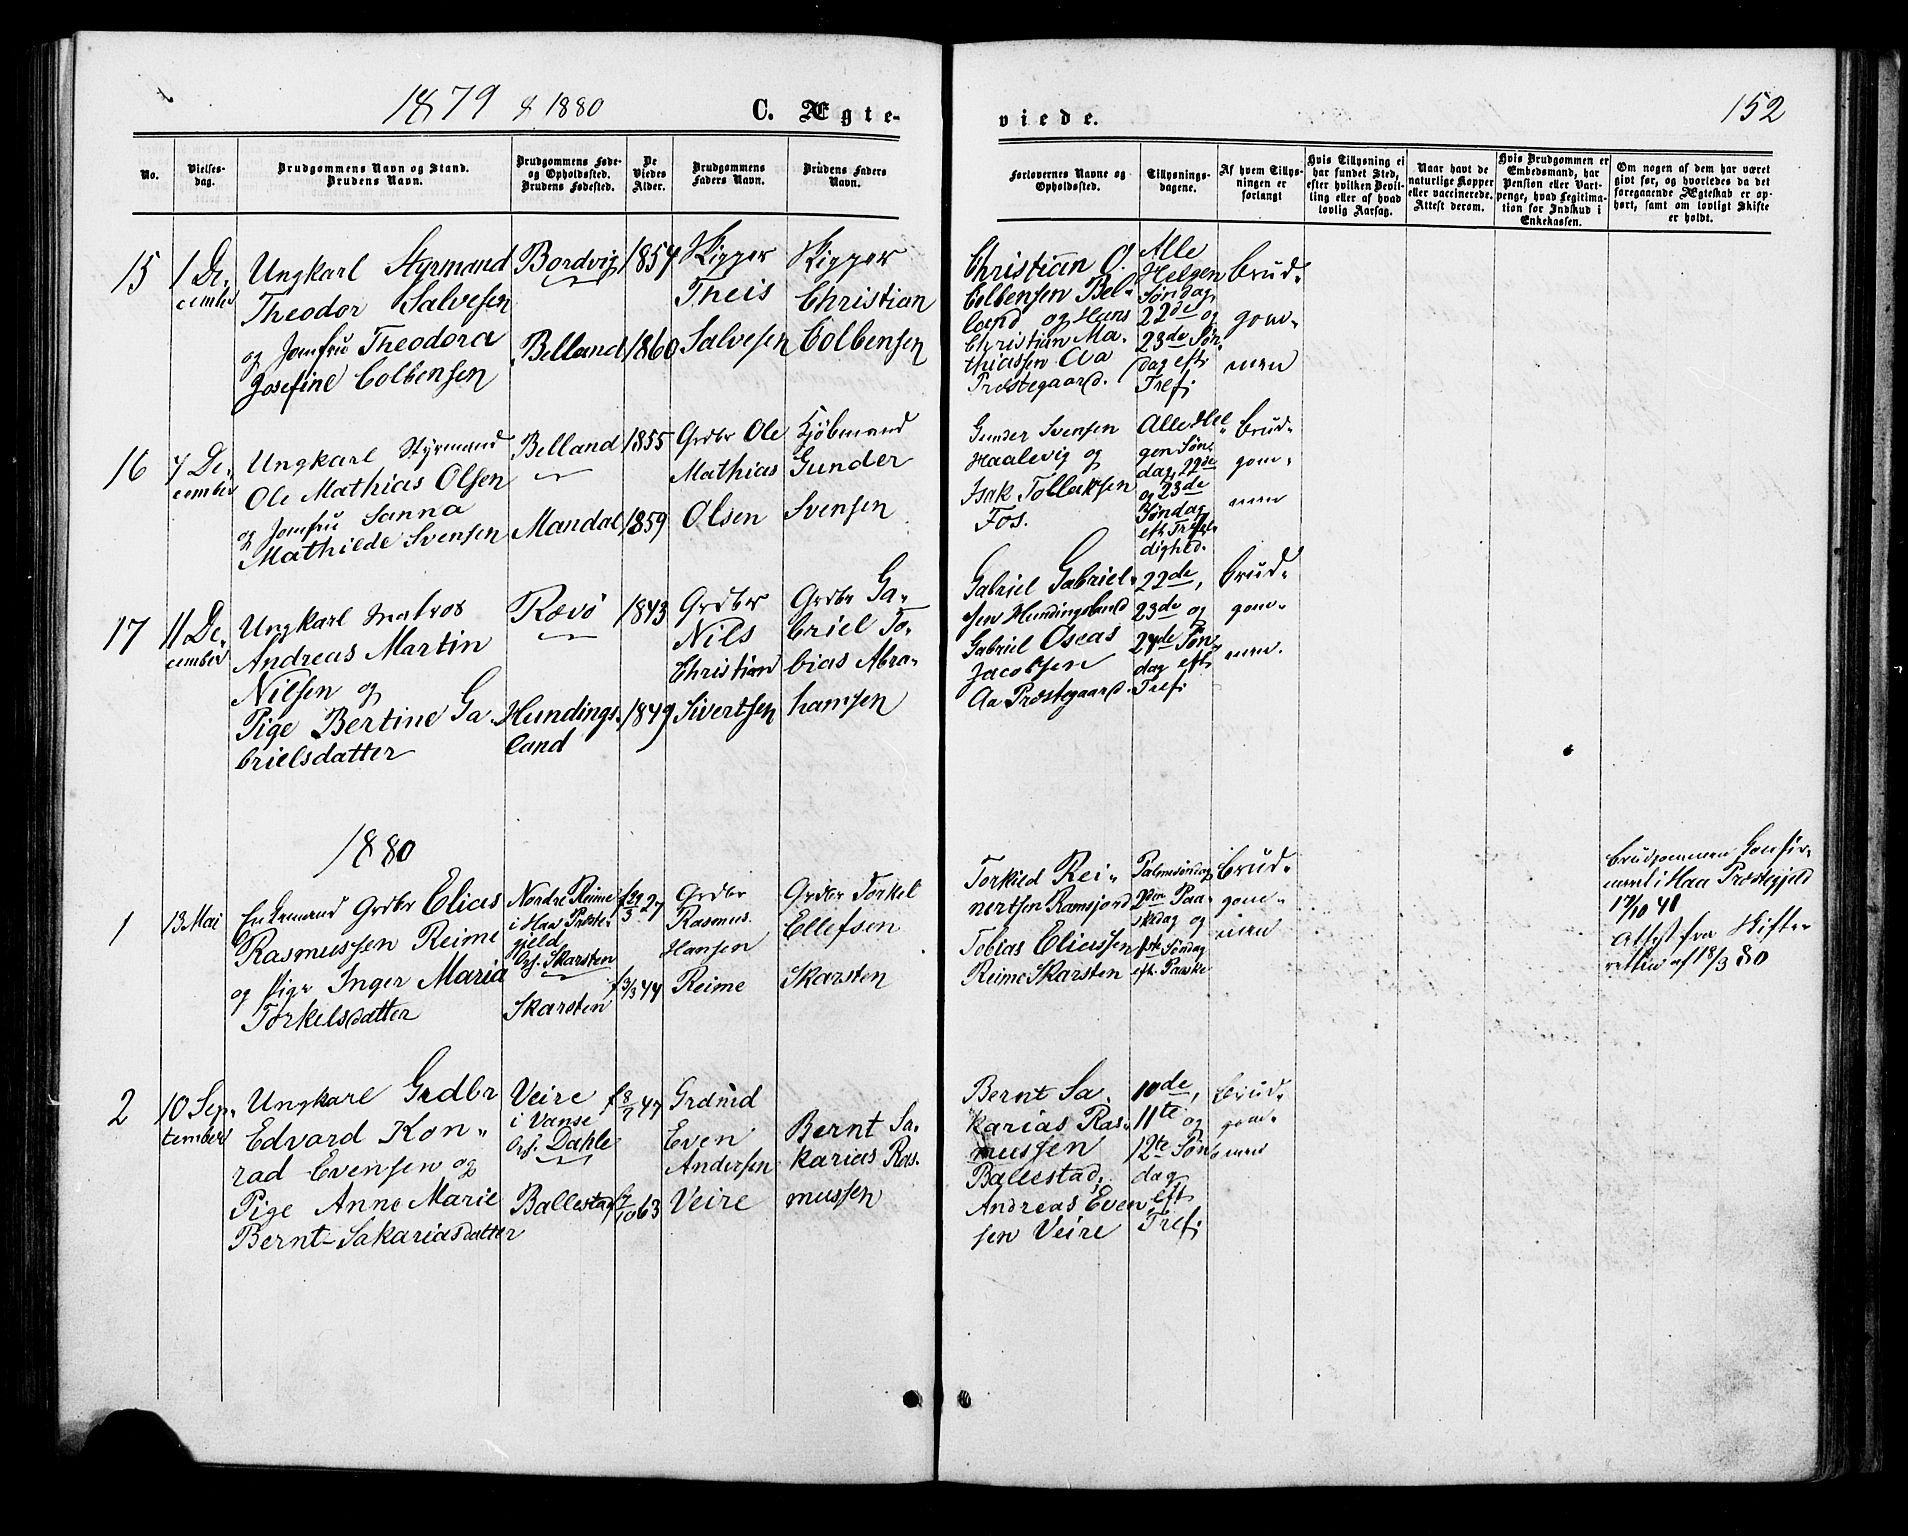 1879 & 1880
C. Ægte-
viede.
152
No.
Vielses-
dag.
Brudgommens Navn og Stand.
Brudens Navn.
Brudgommens Føde-
og Opholdssted.
Brudens Fødested.
De
Viedes
Alder.
Brudgommens
Faders Navn.
Brudens Faders
Navn.
Forlovernes Navne og
Opholdssted.
Tillysnings-
dagene.
Af hvem Tillys-
ningen er
forlangt
Hvis Tillysning ei
har fundet Sted,
efter hvilken Bevil-
ling eller af hvad
lovlig Aarsag.
Naar havt de
naturlige Kopper
eller vaccinerede.
Attest derom.
Hvis Brudgommen er
Embedsmand, har
Pension eller Vart-
penge, hvad Legitima-
tion for Indskud i
Enkekassen.
Om nogen af dem har været
gift før, og hvorledes da det
foregaaende Ægteskab er op-
hørt, samt om lovligt Skifte
er holdt.
15
1 De-
cember
Ungkarl Styrmand
Theodor Salvesen
og Jomfru Theodora
Josefine Colbensen
Bordvig
Belland
1857
1860
Skipper
Theis
Salvesen
Skipper
Christian
Colbensen
Christian O.
Colbensen Bel-
land og Hans
Christian Ma-
thiassen Aa
Præstegaard.
Alle
Helgen
Søndag,
22de og
23de Søn-
dag eftr
Tref;
brud-
gom-
men
16
7 De-
cember
Ungkarl Styrmand
Ole Mathias Olsen
og Jomfru Sanna
Mathilde Svensen
Belland
Mandal
1855
1859
Grdbr Ole
Mathias
Olsen
Kjöbmand
Gunder
Svensen
Gunder Svensen
Haalevig og
Isak Tollaksen
Fos.
Alle Hel-
gen Søn-
dag, 22de
og 23de
Søndag
eft. Trefol-
dighed.
brud-
gom-
men
17
11 De-
cember
Ungkarl Matros
Andreas Martin
Nilsen og
Pige Bertine Ga-
brielsdatter
Rævö
Hundings-
land
1843
1849
Grdbr
Nils
Christian
Sivertsen
Grdbr Ga-
briel To-
bias Abra-
hamsen
Gabriel Gabriel-
sen Hundingsland
Gabriel Oseas
Jacobsen
Aa Præstegaard.
22de,
23de og
24de Søn-
dag eft.
Tref;
brud-
gom-
men.
1880
1
13 Mai
Enkemand Grdbr Elias
Rasmussen Reime
og Pige Inger Maria
Torkelsdatter
Nordre Reime
i Haa Præste-
gjeld
Opf. Skarsten
Skarsten
f 29/3 27
f 3/3 44
Grdbr
Rasmus
Hansen
Reime
Grdbr Torkel
Ellefsen
Skarsten
Torkild Rei-
nertsen Ramsjord
Tobias Eliassen
Reime Skarsten
Palmesöndag
2den Paa-
skedag og
1ste Søndag
eft. Paaske
brud-
gom-
men
Brudgommen Confir-
meret i Haa Præstegjeld
17/10 41
Attest fra Skifte-
retten af 18/3 80
2
10 Sep-
tember
Ungkarl Grdbr
Edvard Kon-
rad Evensen og
Pige Anne Marie
Bernt-Sakariasdatter
Veire
i Vanse
Opf. Dahle
Ballestad
f 8/7 47
f 7/10 63
Grdmd
Even
Andersen
Veire
Bernt Sa-
karias Ras-
mussen
Bernt Sa-
karias Ras-
mussen
Ballestad;
Andreas Even-
sen Veire
10de,
11te og
12te Søn-
dag
eft
Tref;
brud-
gom-
men